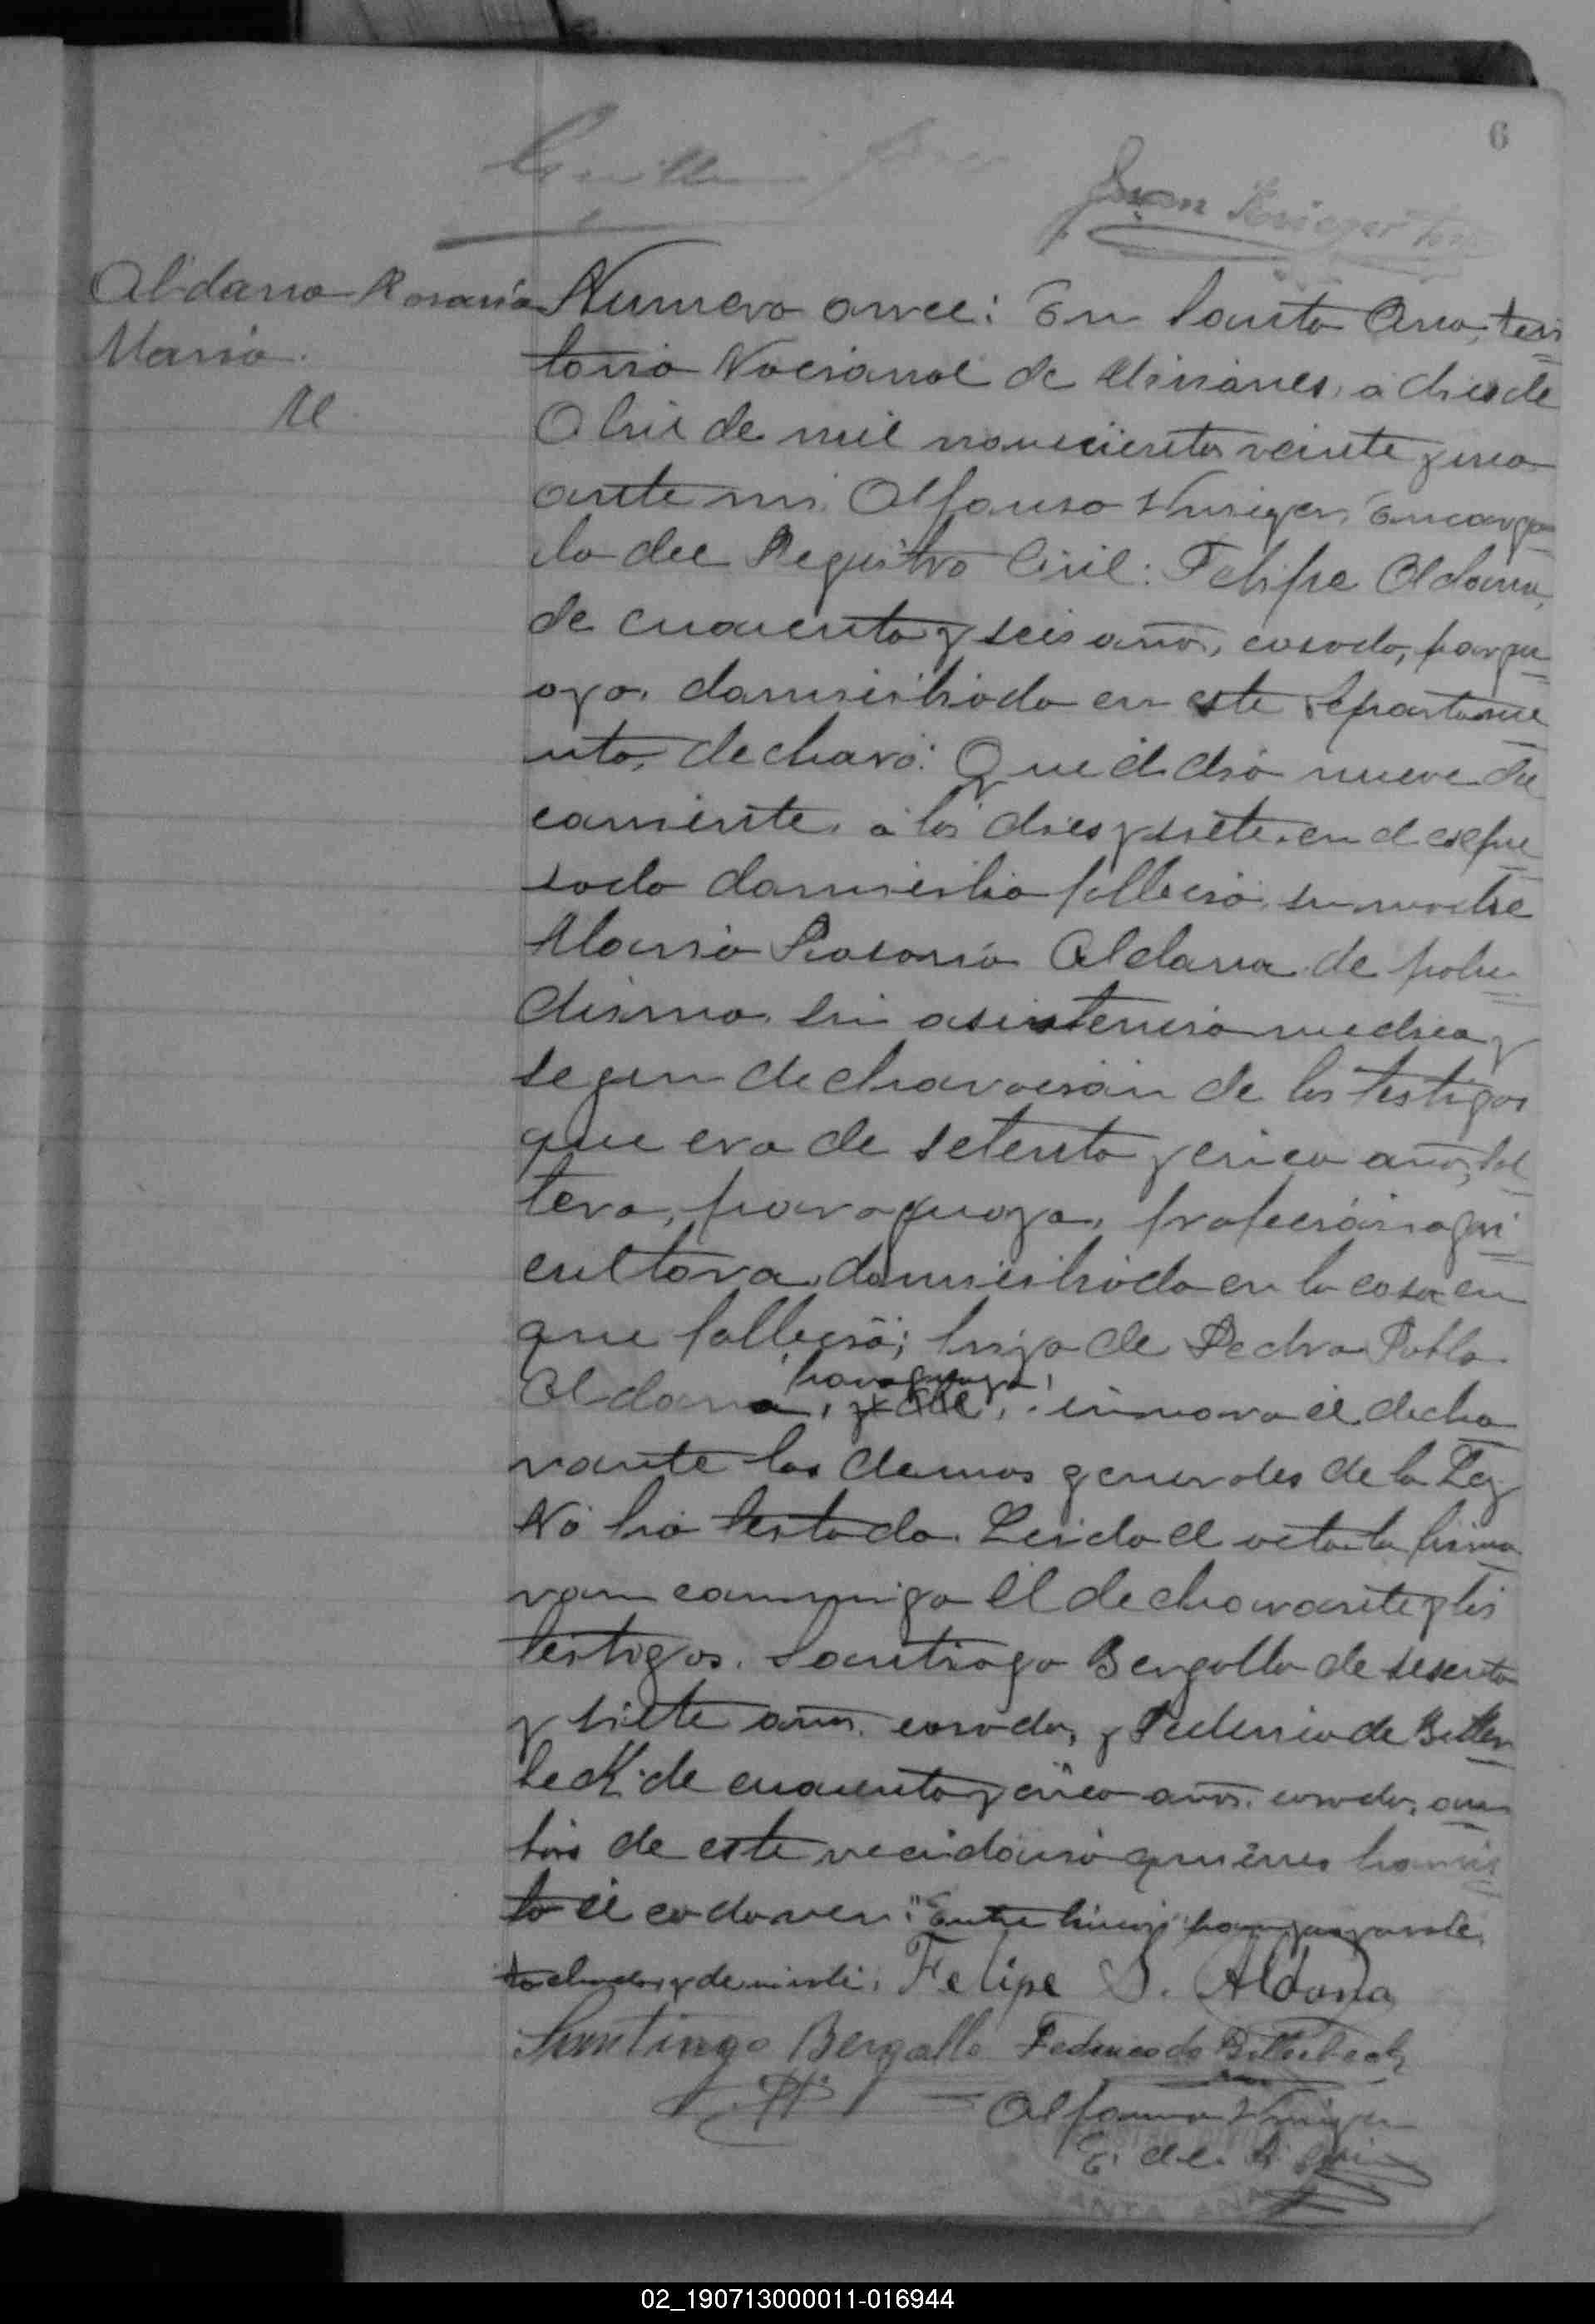 6
Juan Krieger
Aldana Rosario
Maria.
Numero once: En Santa Ana, terri
torio Nacional de Misiones, a dies de
Abril de mil novecientos veinte y uno
ante mi Alfonso Encarga
do del Registro Civil: Felipe Aldana,
de cuarenta y seis años, casado, paragu
ayo, domiciliado en este departame
nto, declaró: Que el dia nueve del
corriente, a las dies y siete en el expre
sado domicilio fallecio, su madre
Maria Rosario Aldana de palu
dismo, sin asistencia medica y
segun declaracion de los testigos
que era de setenta y cinco años, sol
tera, paraguaya, profecion agri
cultora, domiciliada en la casa en
que fallecio; hija de Pedro Pablo
paraguayo,
Aldana, y de, innora el decla
rante las demas generales de la Ley
No ha testado. Leida el acta la firma
ron conmigo el declarante y los
testigos. Santiago Bergallo de sesenta
y siete años, casado, y Federico de Bitter
beck de cuarenta y cinco años, casado, am
bos de este vecindario quienes han vis
to el cadaver. "Entre lineas" paraguayo vale,
tachado y de no vale. Felipe S. Aldana
Santiago Bergallo Federico de Bitterbeck
Alfonso
E. del R. Civil
SANTA ANA
02_190713000011-016944